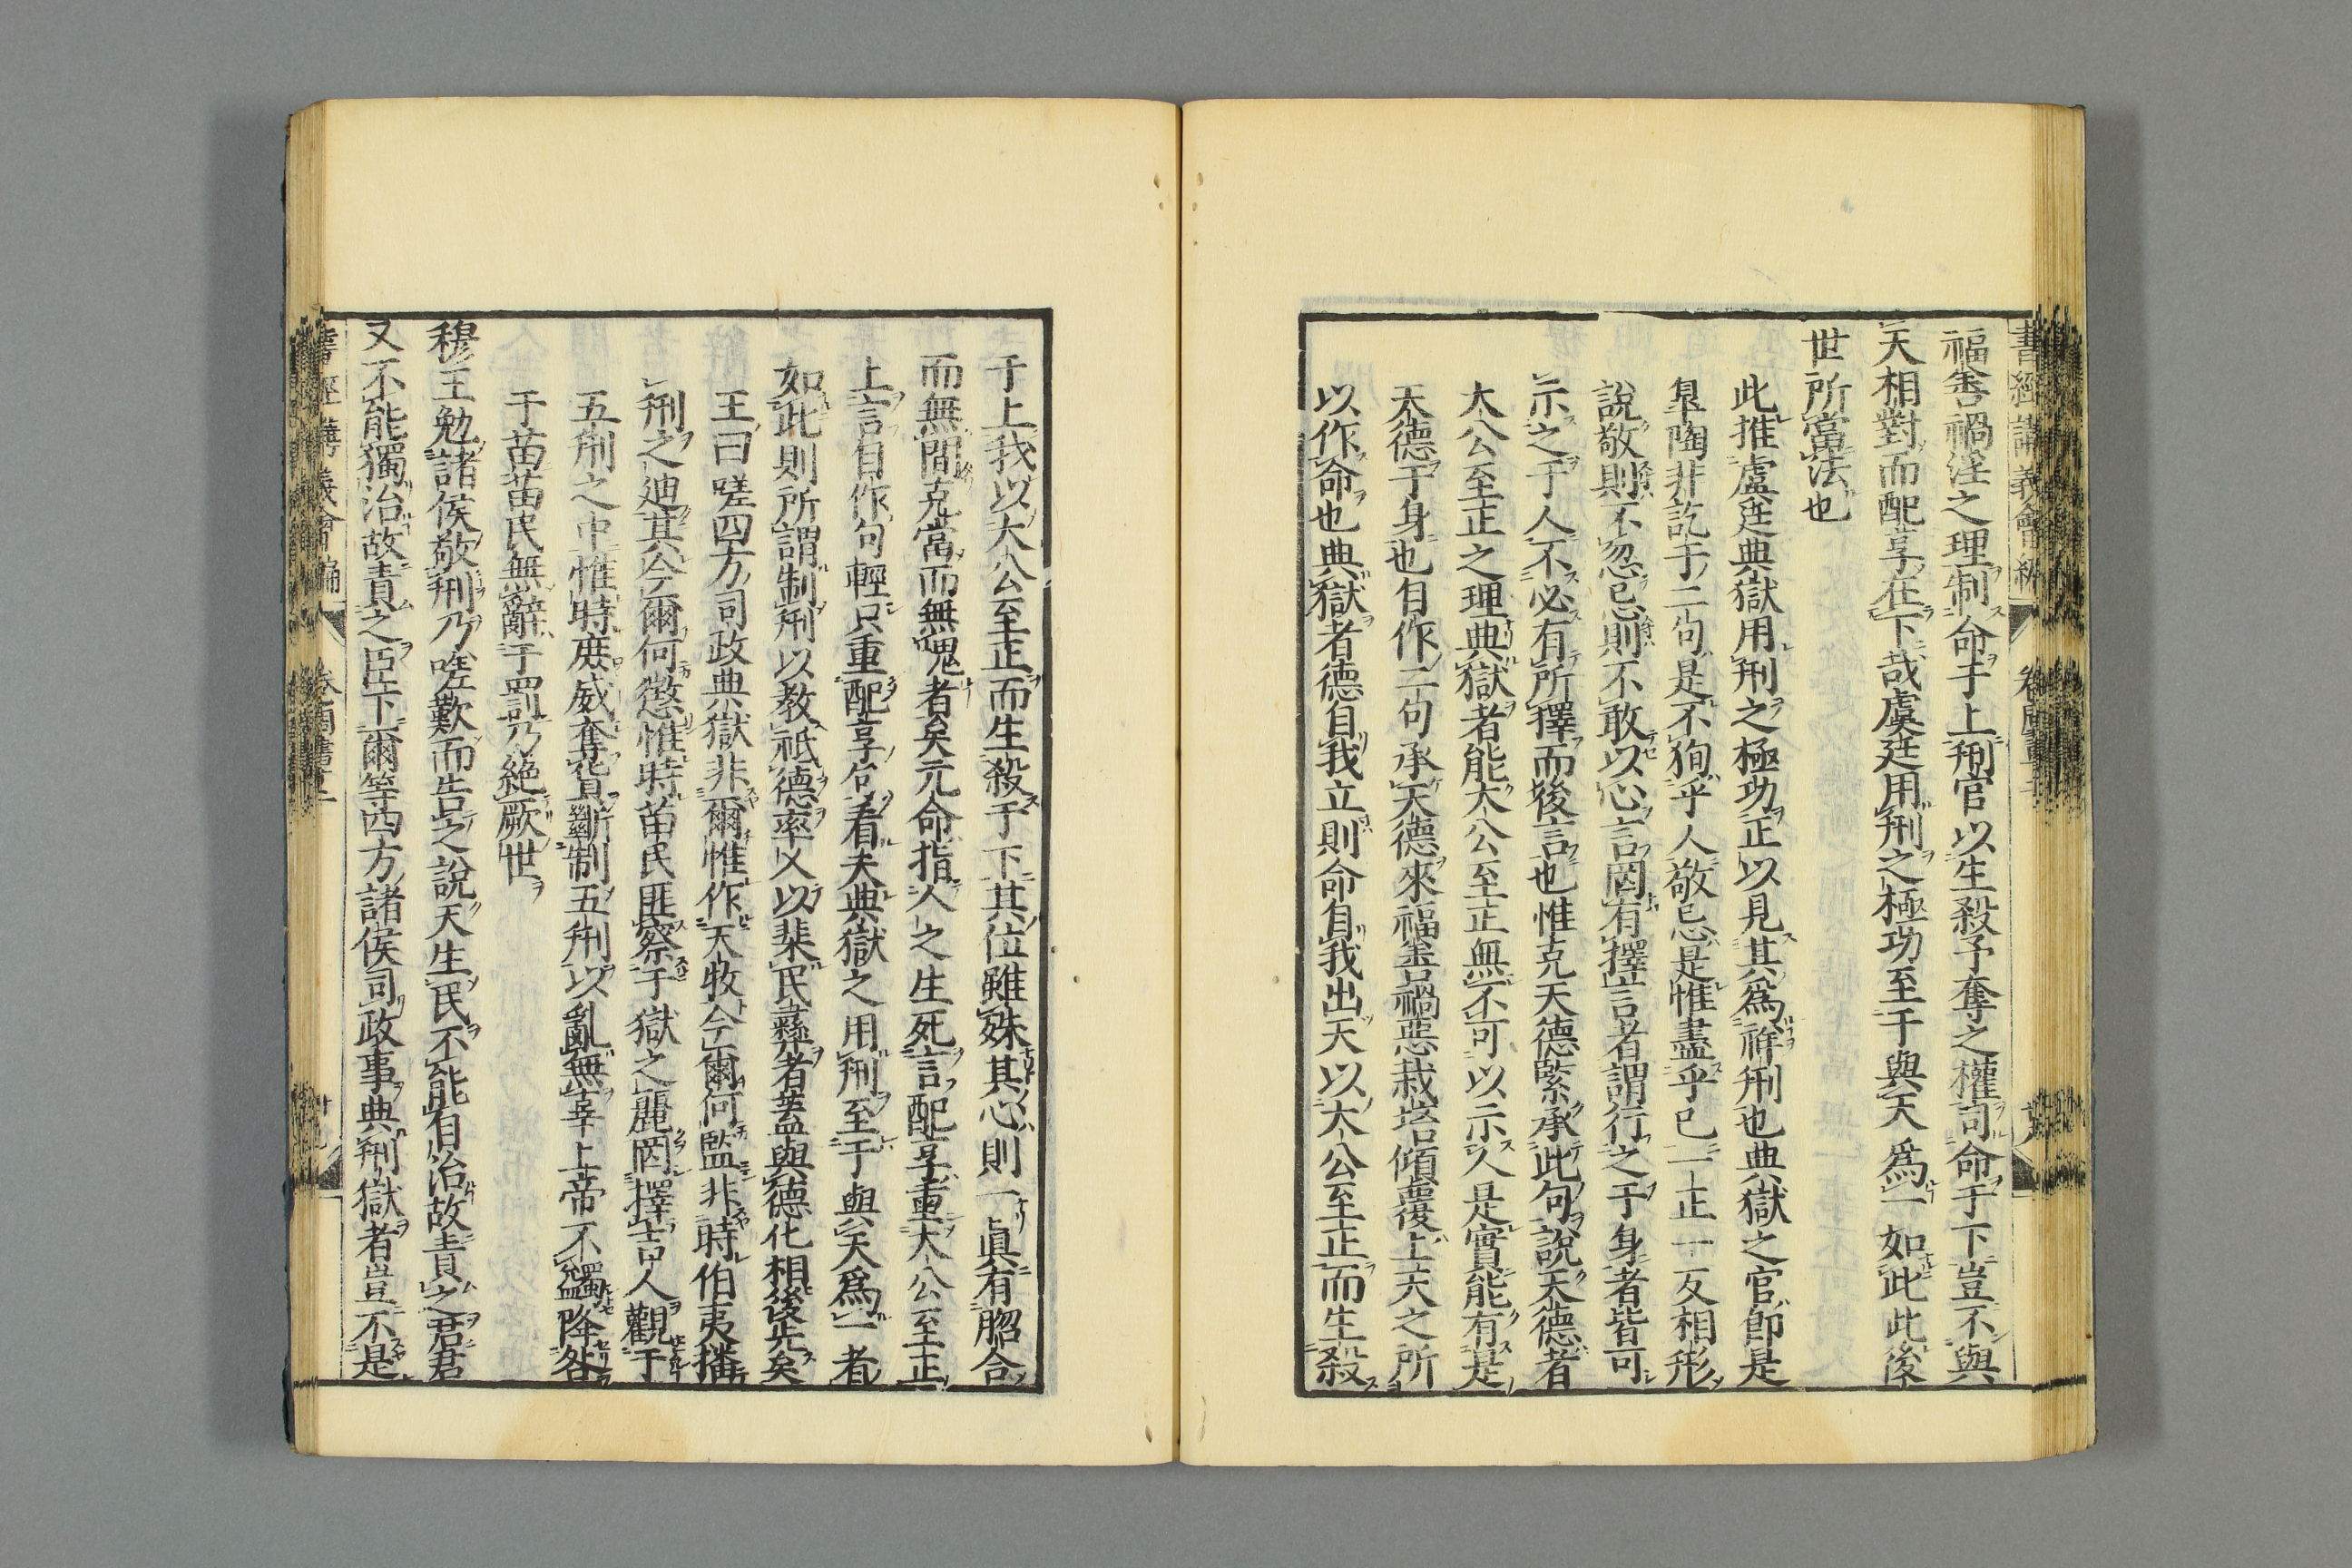 福善禍淫之理制命于上刑官以生殺予奪之權司命于下豈不與
天相對而配享在下哉虞廷用刑之極功至于與天爲一如此此後
世所當法也
此推虞廷典獄用刑之極功正以見其爲祥刑也典獄之官即是
皐陶非訖于二句是不狥乎人敬忌是惟盡乎已一正一反相形
說敬則不忽忌則不敢以心言罔有擇言者謂行之于身者皆可
示之于人不必有所擇而後言也惟克天德緊承此句說天德者
大公至正之理典獄者能大公至正無不可以示人是實能有是
天德于身也自作二句承天德來福善禍惡栽培傾覆上天之所
以作命也典獄者德自我立則命自我出天以大公至正而生殺
于上我以大公至正而生殺于下其位雖殊其心則一眞有脗合
而無間克當而無愧者矣元命指人之生死言配享重大公至正
上言自作句輕只重配享句看夫典獄之用刑至于與天爲一者
如此則所謂制刑以教祗德率乂以棐民彝者葢與德化相後先矣
王曰嗟四方司政典獄非爾惟作天牧今爾何監非時伯夷播
刑之迪其今爾何懲惟時苗民匪察于獄之麗罔擇吉人觀于
五刑之中惟時庶威奪貨斷制五刑以亂無辜上帝不蠲降咎
于苗苗民無辭于罰乃絕厥世
穆王勉諸侯敬刑乃嗟歎而告之說天生民不能自治故責之君君
又不能獨治故責之臣下爾等四方諸侯司政事典刑獄者豈不是
書經講義會編